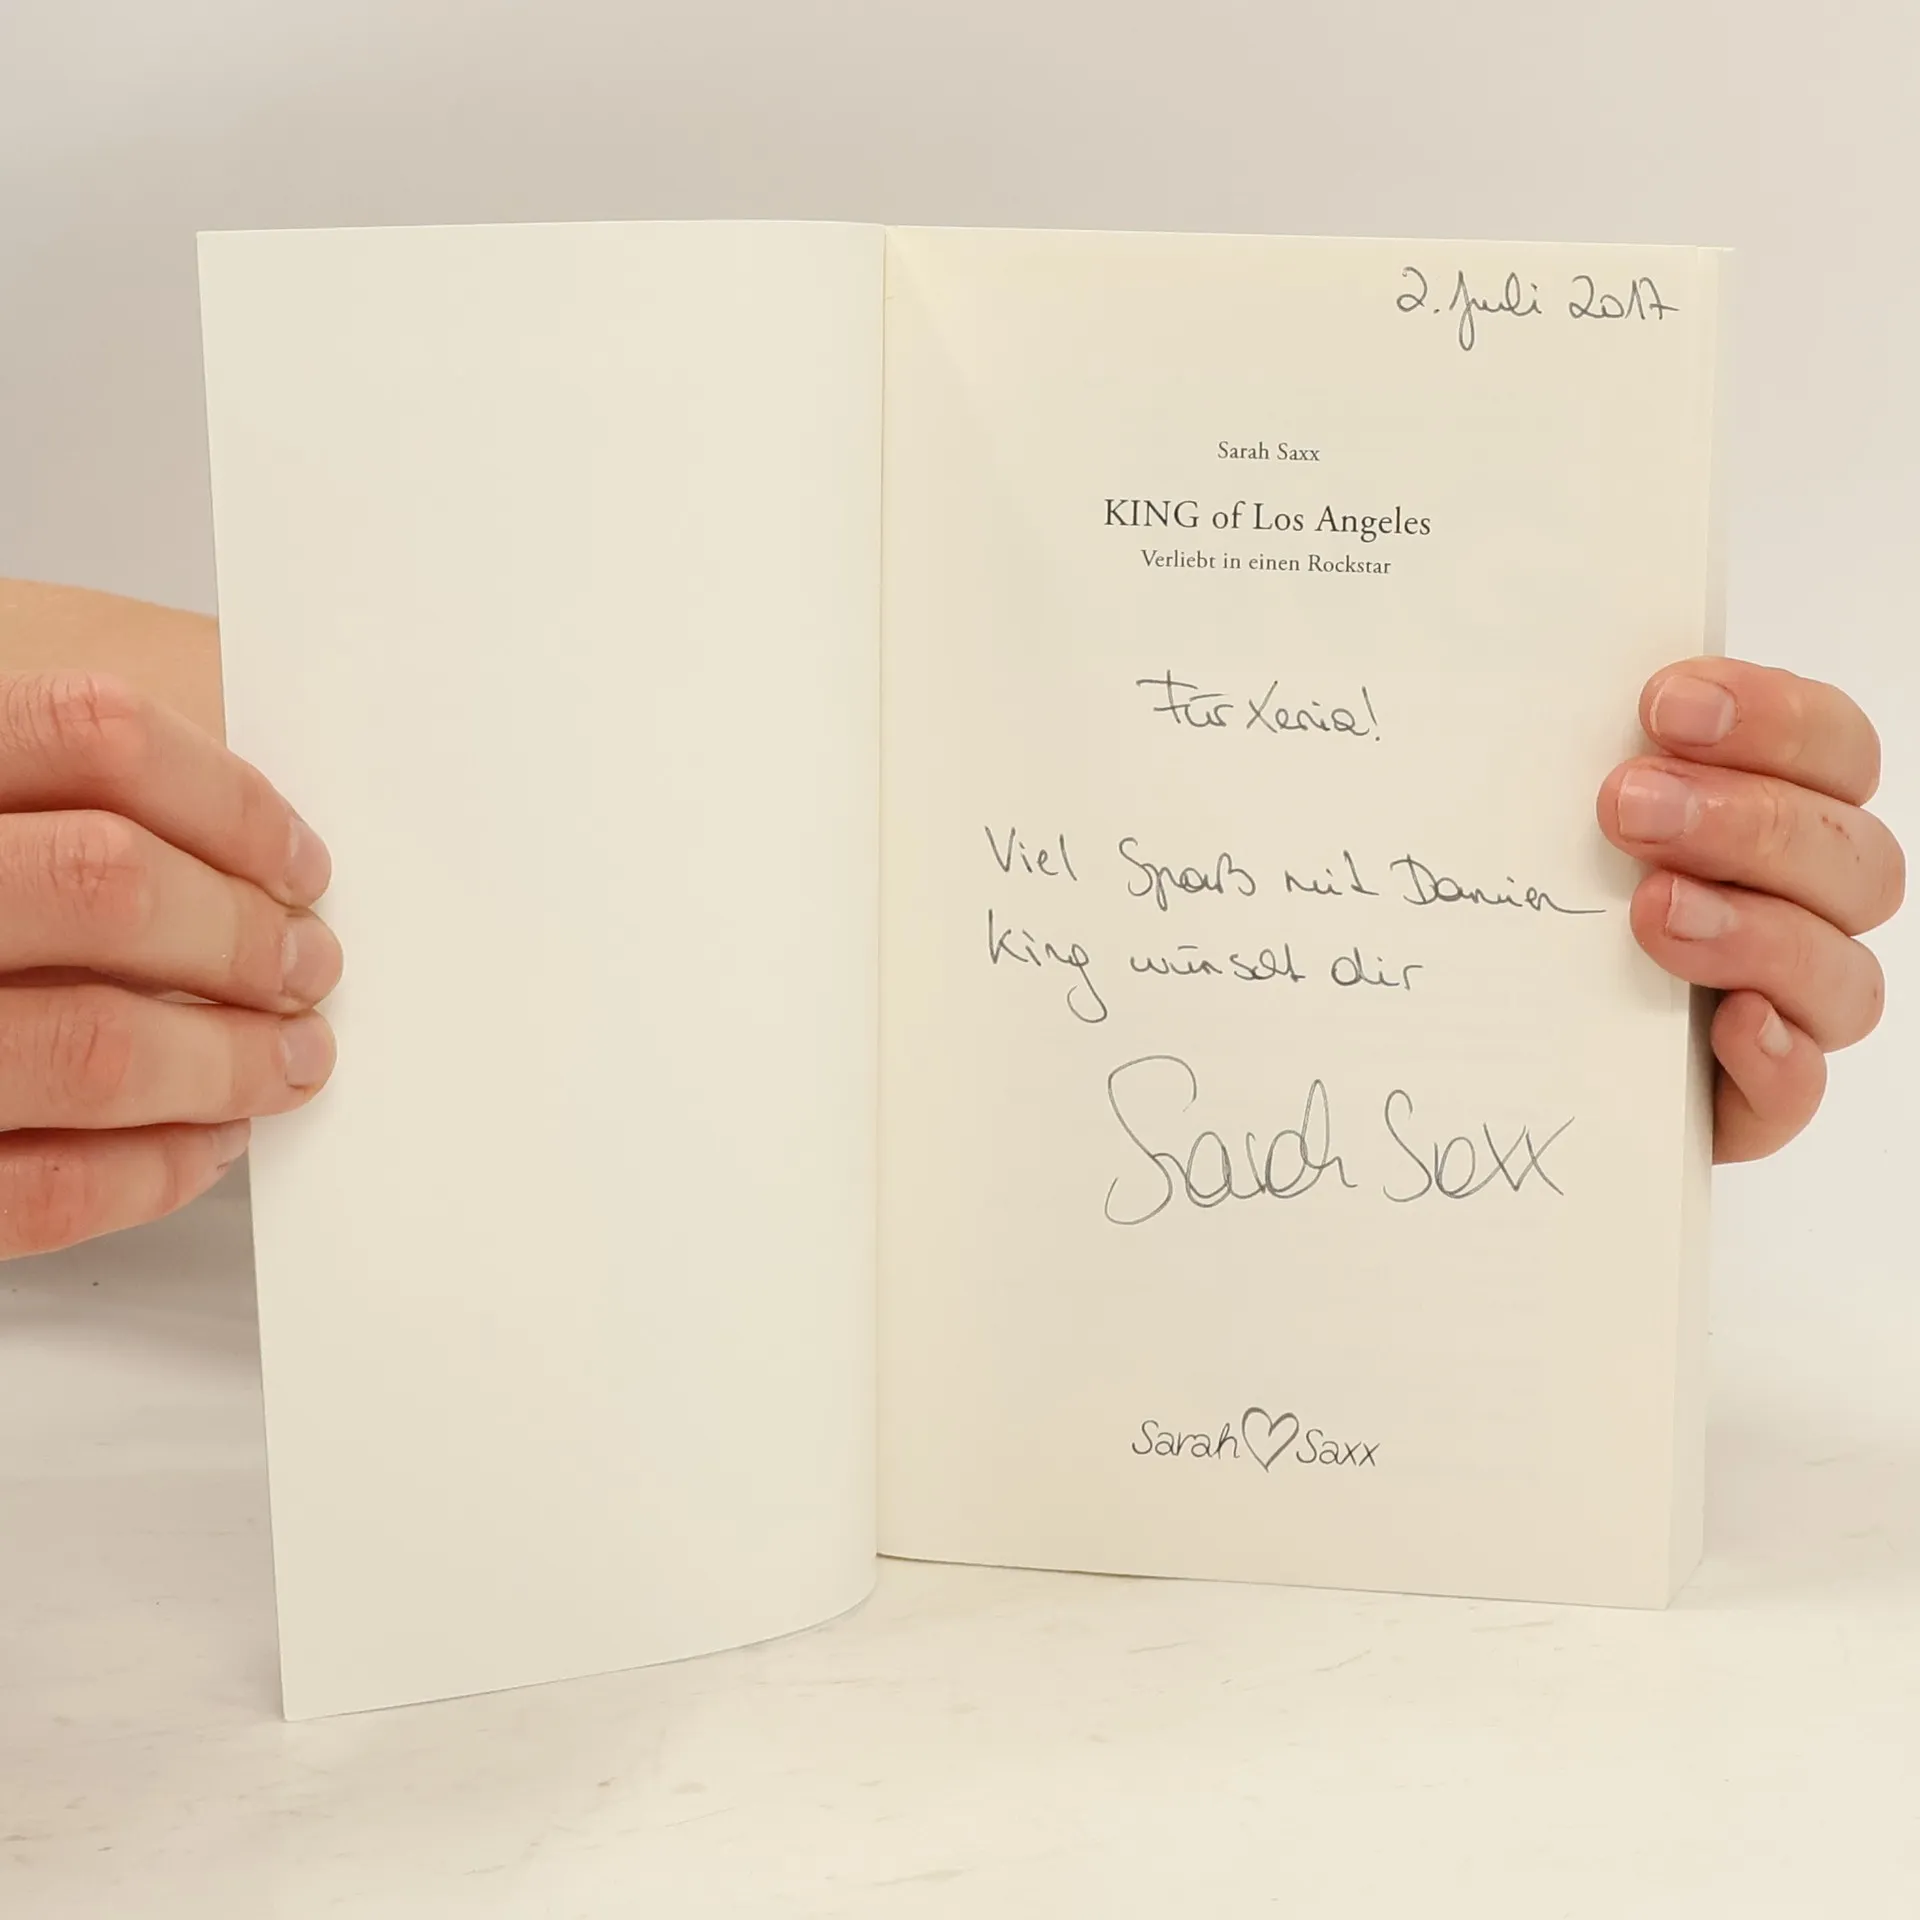 2. Juli 2017
Sarah Saxx
KING of Los Angeles
Verliebt in einen Rockstar
Für Xenia!
Viel Spaß mit Damien
King wünscht dir
Sarah Saxx
Sarah Saxx